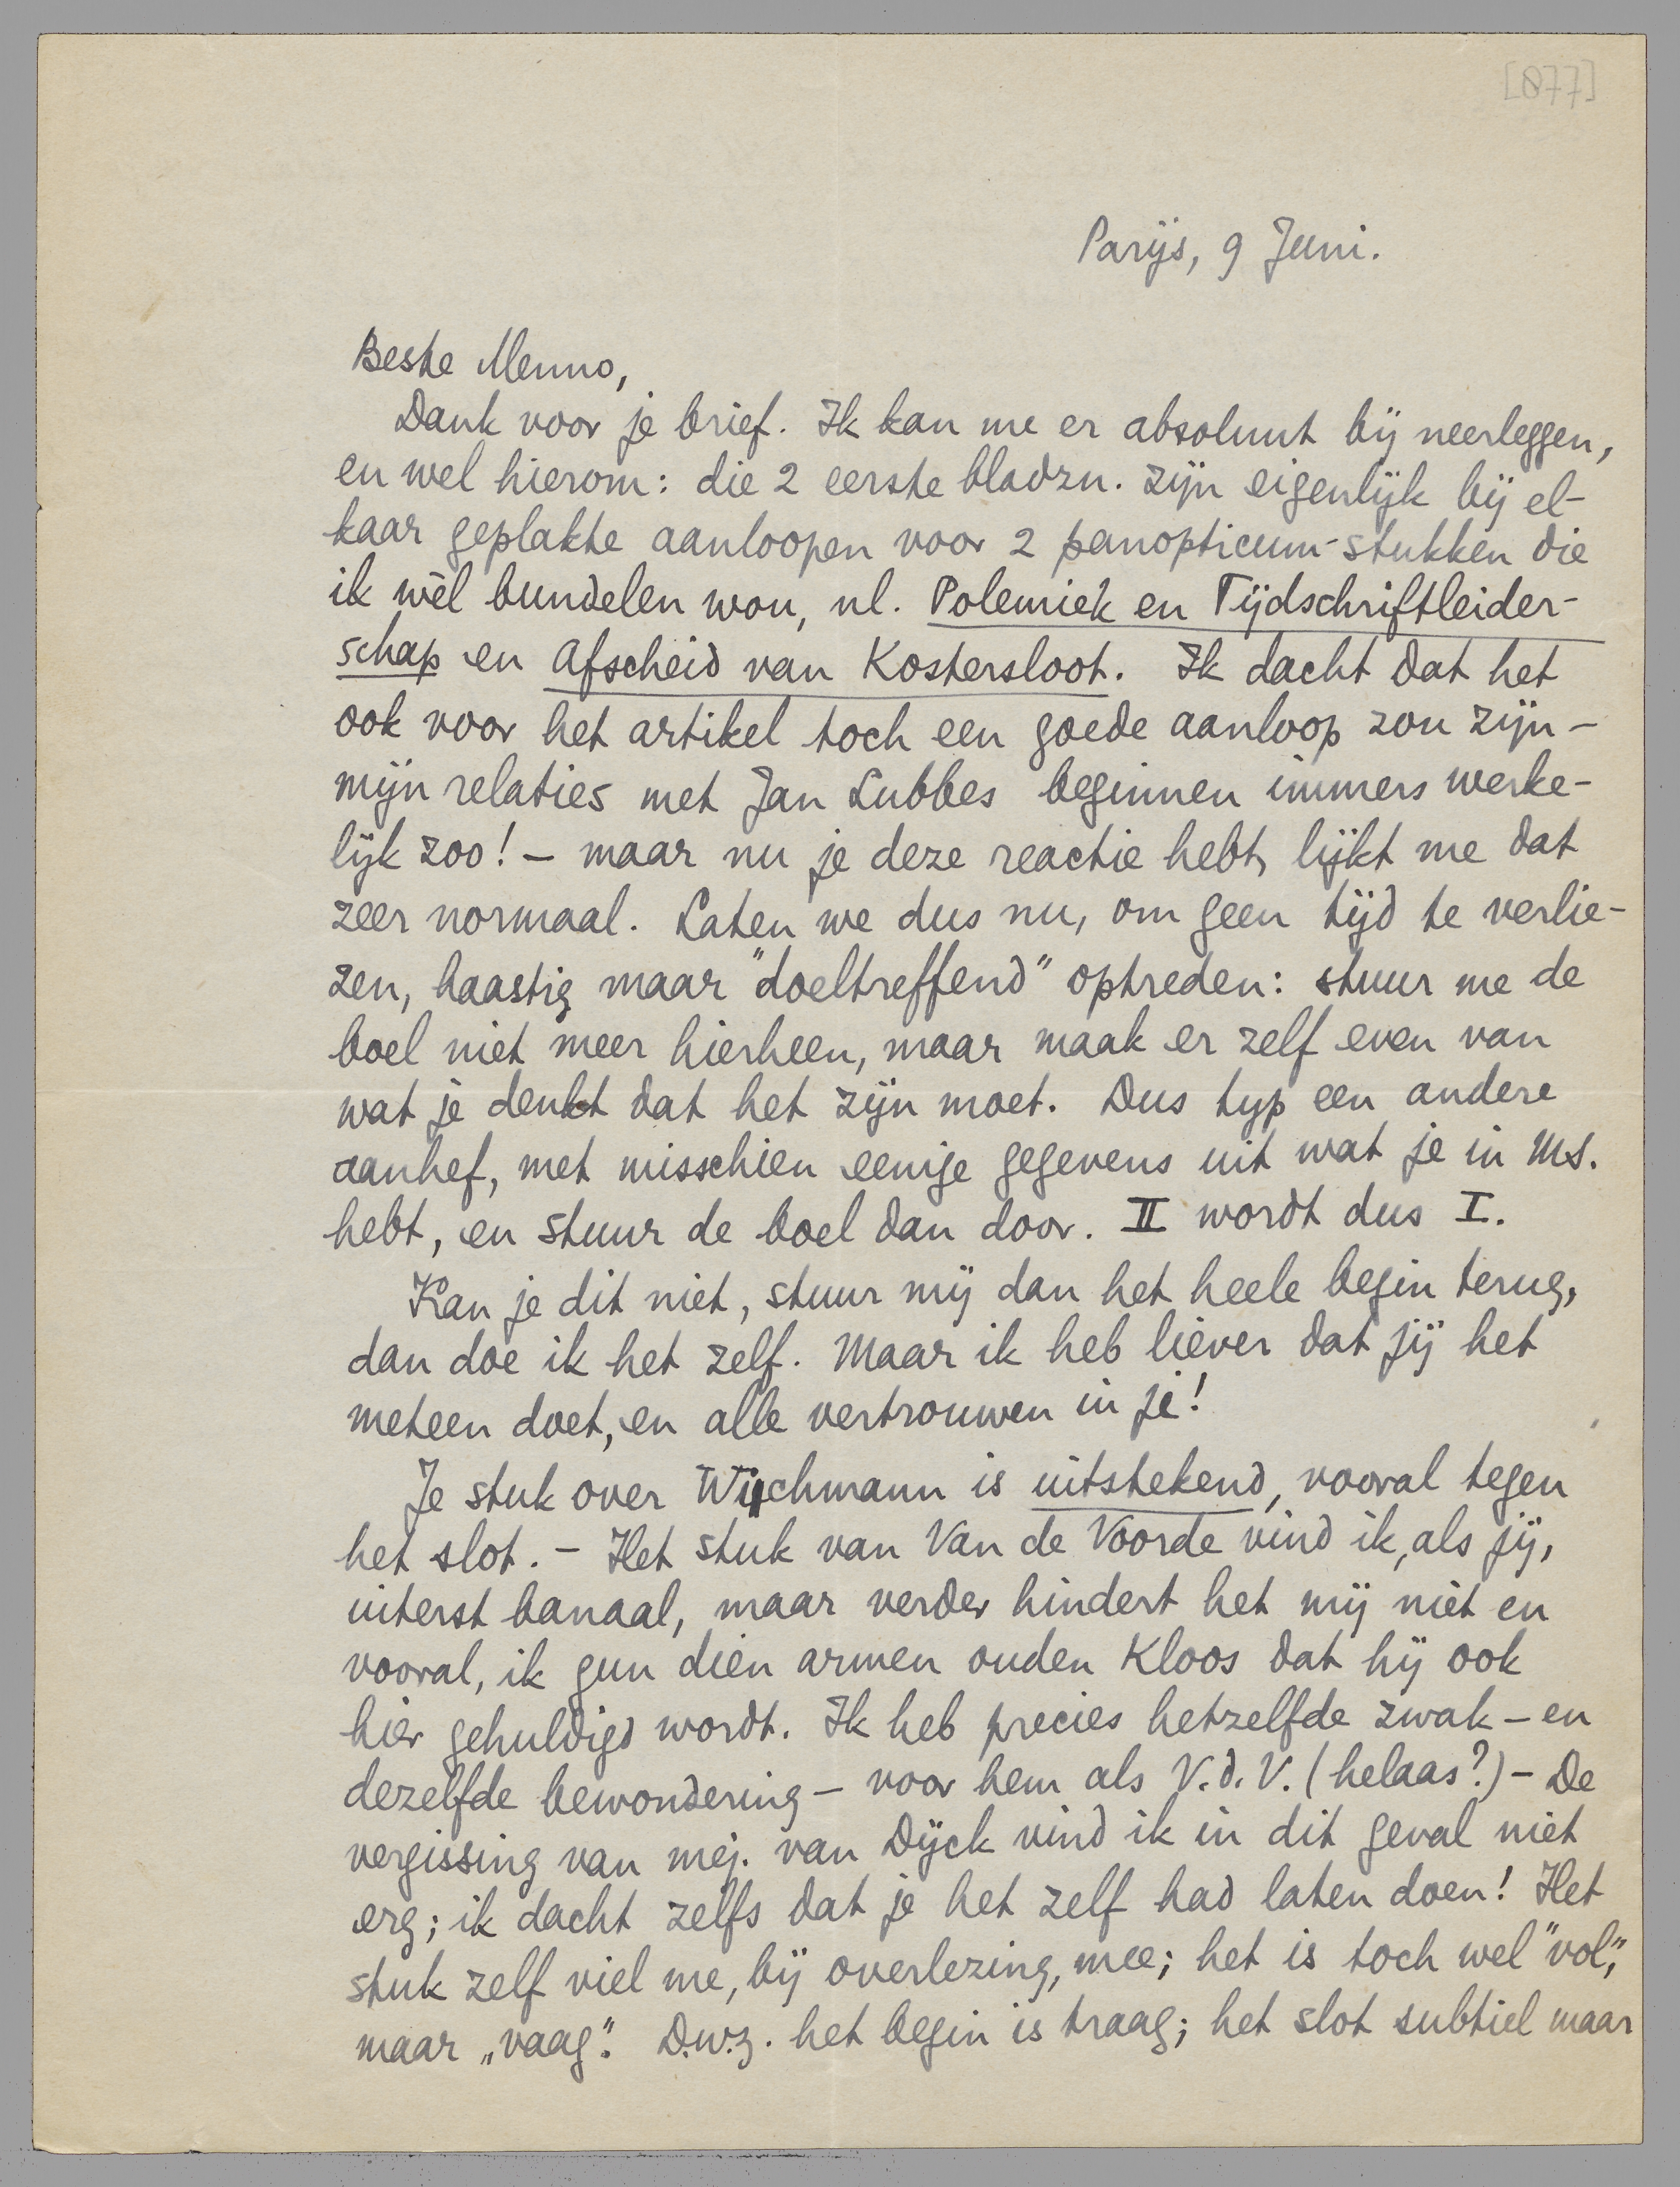 [877]
Parijs, 9 Juni.
Beste Menno,
Dank voor je brief. Ik kan me er absoluut bij neerleggen,
en wel hierom: die 2 eerste bladzn. zijn eigenlijk bij el-
kaar geplakte aanloopen voor 2 panopticum-stukken die
ik wèl bundelen wou, nl. Polemiek en Tijdschriftleider-
schap en Afscheid van Kostersloot. Ik dacht dat het
ook voor het artikel toch een goede aanloop zou zijn -
mijn relaties met Jan Lubbes beginnen immers werke-
lijk zoo! - maar nu je deze reactie hebt, lijkt me dat
zeer normaal. Laten we dus nu, om geen tijd te verlie-
zen, haastig maar "doeltreffend" optreden: stuur me de
boel niet meer hierheen, maar maak er zelf even van
wat je denkt dat het zijn moet. Dus typ een andere
aanhef, met misschien eenige gegevens uit wat je in MS.
hebt, en stuur de boel dan door. II wordt dus I.
Kan je dit niet, stuur mij dan het heele begin terug,
dan doe ik het zelf. Maar ik heb liever dat jij het
meteen doet, en alle vertrouwen in je!
Je stuk over Wichmann is uitstekend, vooral tegen
het slot. - Het stuk van Van de Voorde vind ik, als jij,
uiterst banaal, maar verder hindert het mij niet en
vooral, ik gun dien armen ouden Kloos dat hij ook
hier gehuldigd wordt. Ik heb precies hetzelfde zwak - en
dezelfde bewondering - voor hem als V.d.V. (helaas?) - De
vergissing van mej. van Dijck vind ik in dit geval niet
erg; ik dacht zelfs dat je het zelf had laten doen! Het
stuk zelf viel me, bij overlezing, mee; het is toch wel "vol",
maar „vaag". D.w.z. het begin is traag; het slot subtiel maar